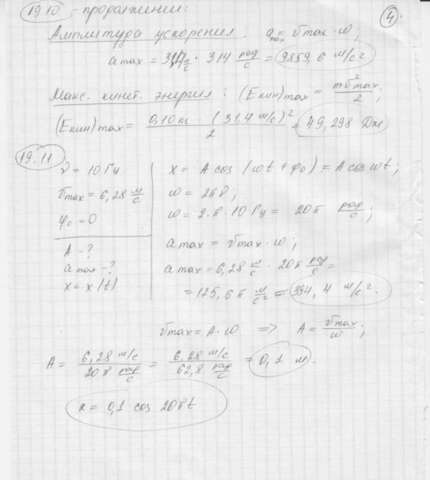 19.10 - продолжении:
4
Амплитуда ускорения. a max = υmax · w;
a max = 31,4 м/с · 314 рад/с = 9859,6 м/с²
Макс. кинет. энергия: (Eкин)max = mυ²max/2;
(Eкин)max = 0,10 кг (31,4 м/с)²/2 = 49,298 Дж
19.11
ν = 10 Гц
υmax = 6,28 м/с
φ₀ = 0
A - ?
a max - ?
x = x(t)
x = A cos (wt + φ₀) = A cos wt;
w = 2πν;
w = 2·π·10 Гц = 20π рад/с;
a max = υmax · w;
a max = 6,28 м/с · 20π рад/с =
= 125,6π м/с² = 394,4 м/с².
υmax = A·w => A = υmax/w;
A = 6,28 м/с / 20π рад/с = 6,28 м/с / 62,8 рад/с = 0,1 м.
x = 0,1 cos 20πt